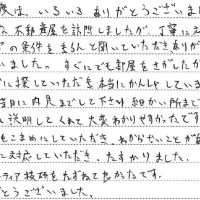 度は、いろいろありがとうございま
な不動産屋を訪問しましたが、丁寧に
での条件をきちんと聞いていただきありが
いました。すぐにでも部屋をさがしたか
に探していただき本当にかんしゃしていま
当日に内見までして下さり細かい所まで
説明してくれて大変わかりやすかったです
もこまめにしていただき、わからないことが
に対応していただき、たすかりました。
ティア技研をたずねてよかったです。
とうございました。